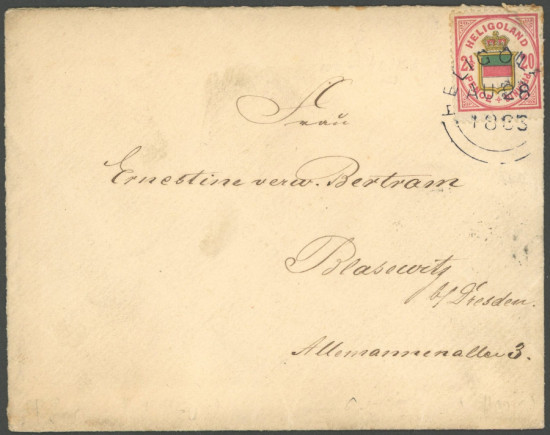 HELIGOLAND
20
HELIGOL
JU 28
1883
Frau
Ernestine verw. Bertram
Blasewitz
b/Dresden.
Allemannenallee 3.